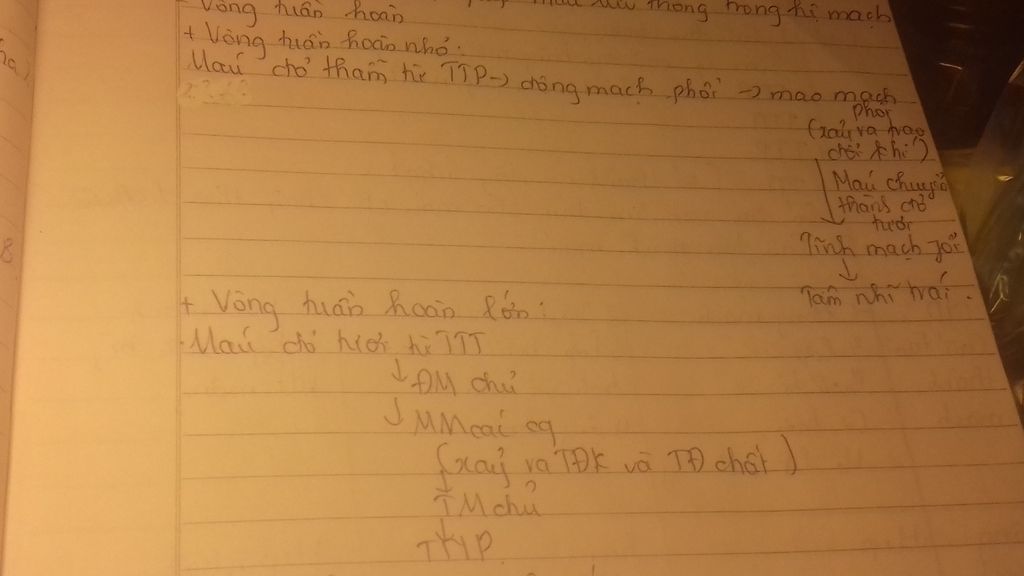 - Vòng tuần hoàn
máu lưu thông trong hệ mạch
+ Vòng tuần hoàn nhỏ:
Máu đỏ thẫm từ TTP → động mạch phổi → mao mạch
phổi
(xảy ra trao
đổi khí)
↓ Máu chuyển
thành đỏ
tươi
Tĩnh mạch phổi
↓
Tâm nhĩ trái.
+ Vòng tuần hoàn lớn:
Máu đỏ tươi từ TTT
↓ ĐM chủ
↓ MM các cq
(xảy ra TĐK và TĐ chất)
↓
TM chủ
↓
8